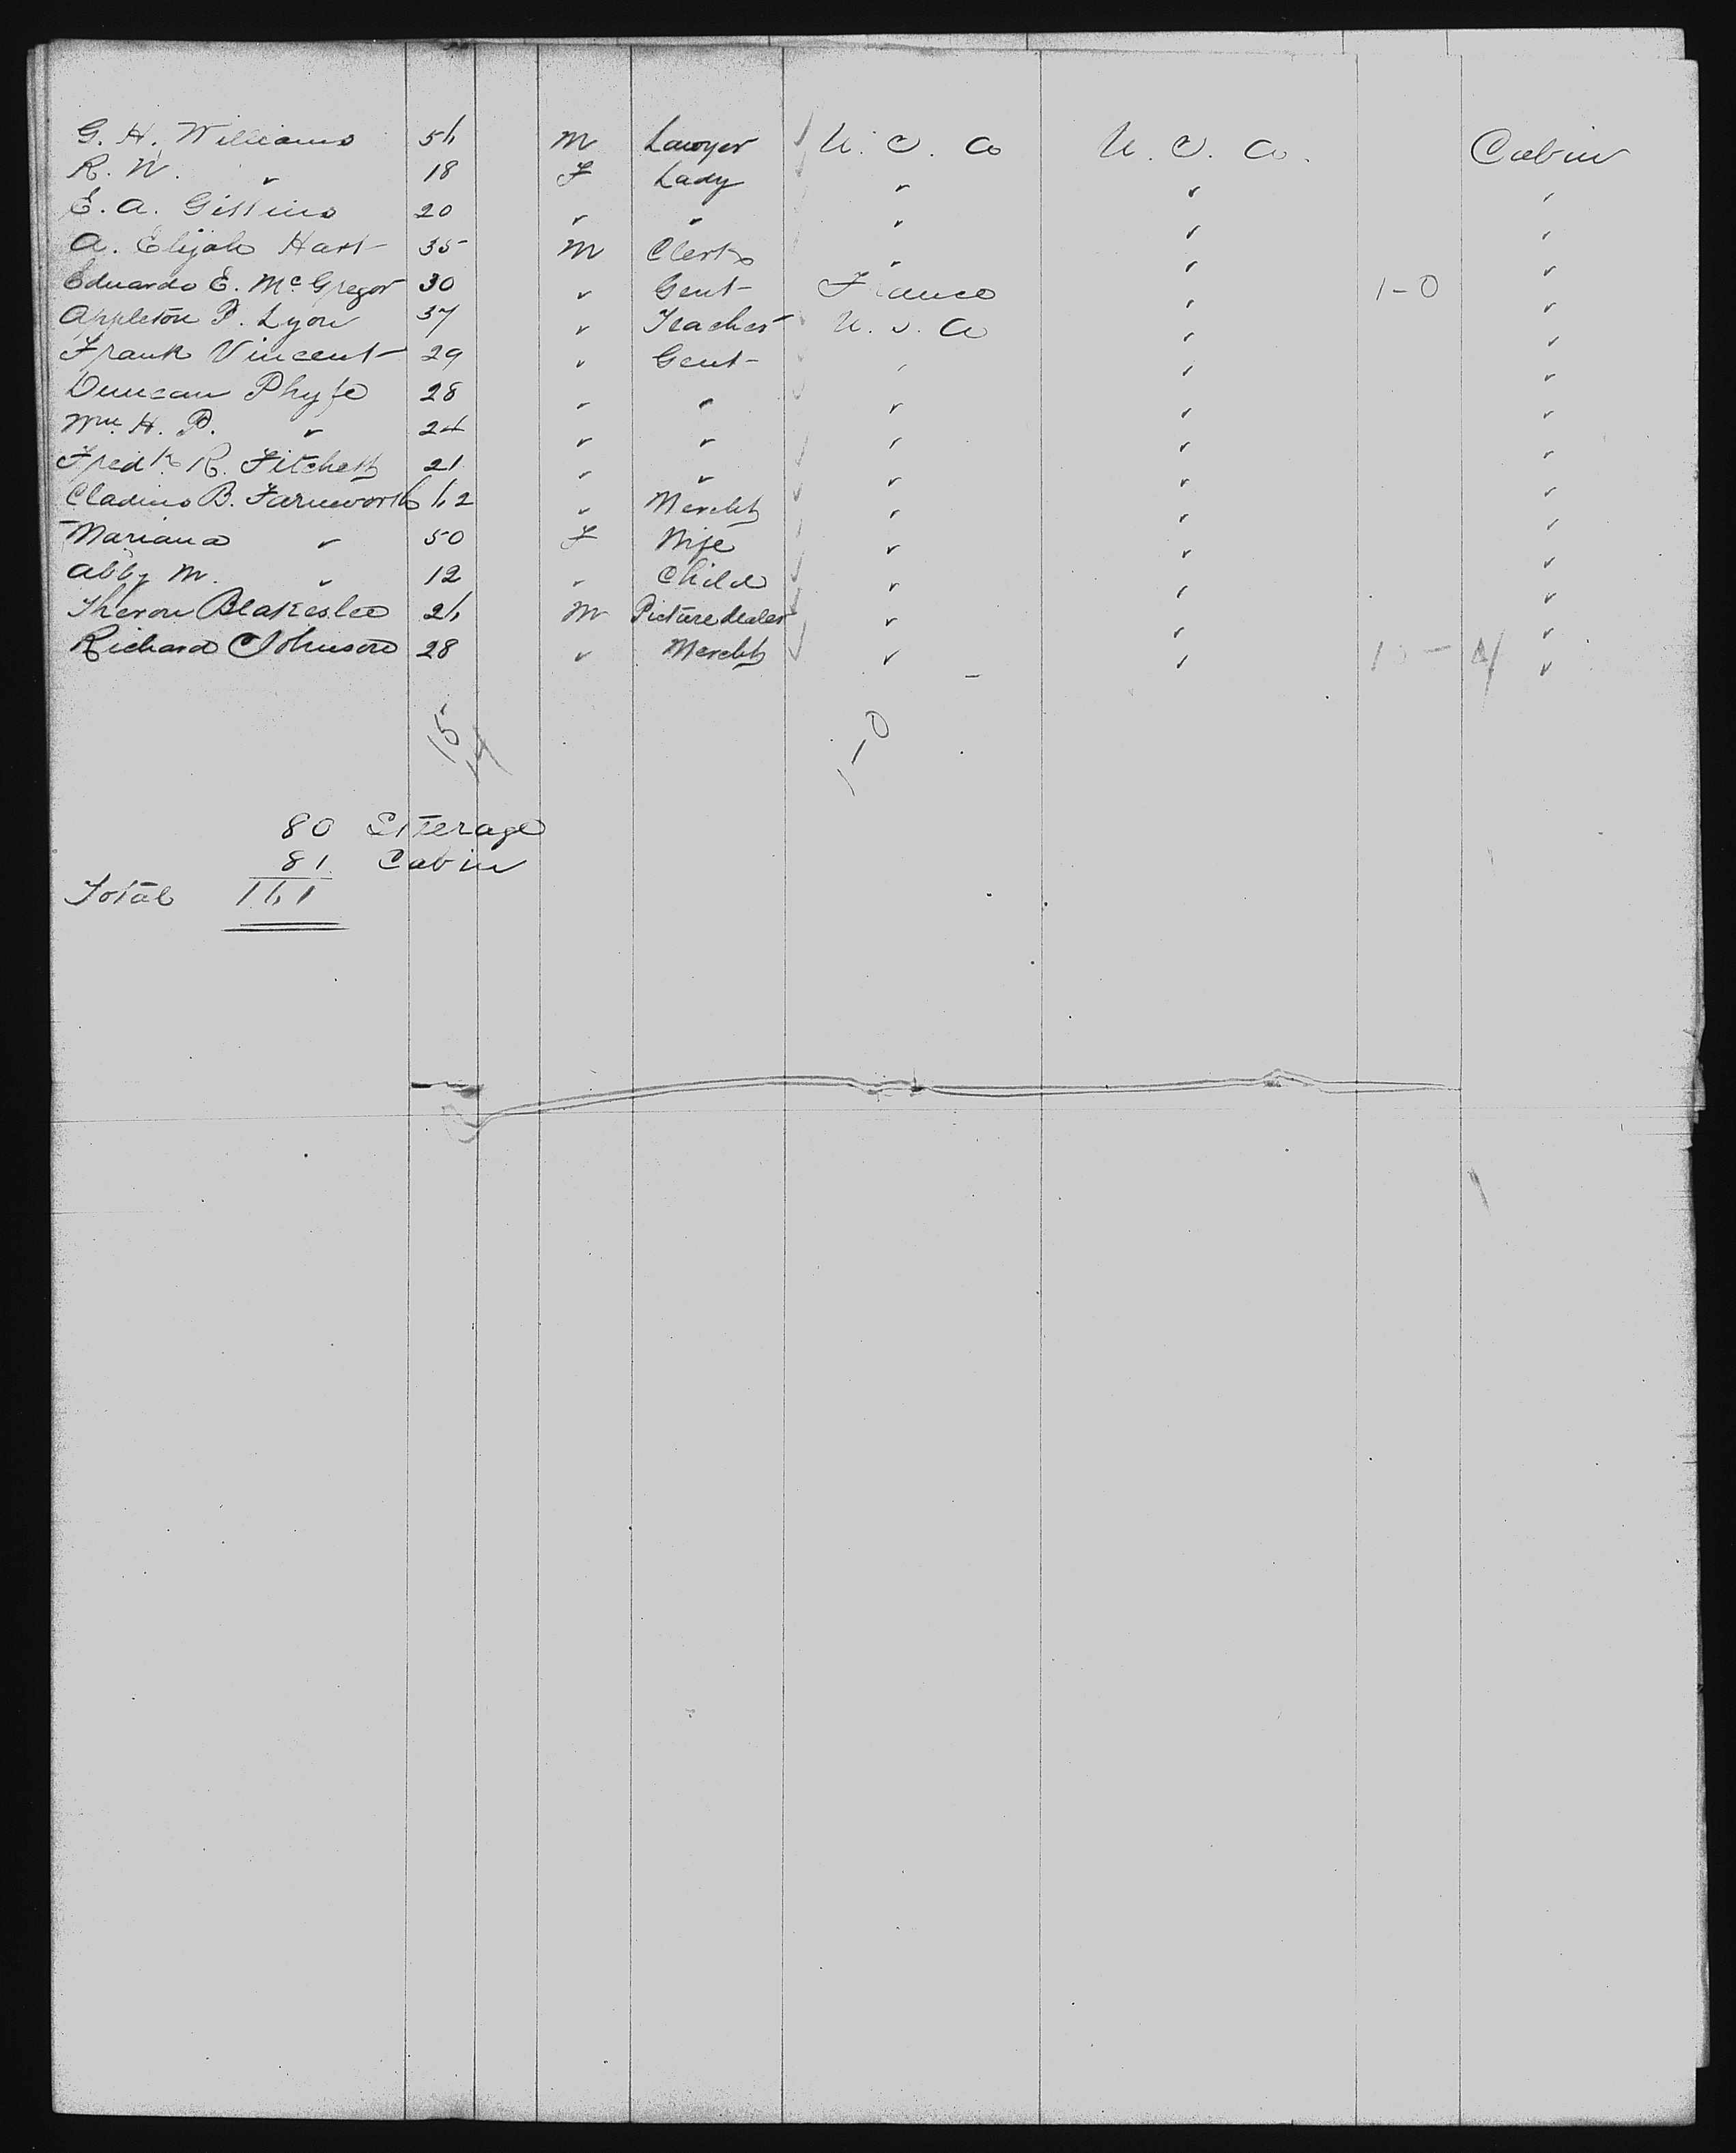 G. H. Williams 56 M Lawyer U. S. A U. S. A. Cabin
R. W. " 18 F Lady " " "
E. A. 20 " " " " "
A. Elijah Hart 35 M Clerk " " "
Eduardo E. McGregor 30 " Gent France " 1-0 "
Appleton P. Lyon 37 " Teacher U. S. A " "
Frank Vincent 29 " Gent " " "
Duncan Phyfe 28 " " " " "
Wm. H. P. " 24 " " " " "
Fredk R. Fitchett 21 " " " " "
B. Farnworth 62 " Mercht " " "
Mariana " 50 F Wife " " "
Abby M. " 12 " Child " " "
Theron Blakeslee 26 M Picture dealer " " "
Richard C Johnson 28 " Mercht " " "
15
14
1-0
80 Steerage
81 Cabin
Total 161